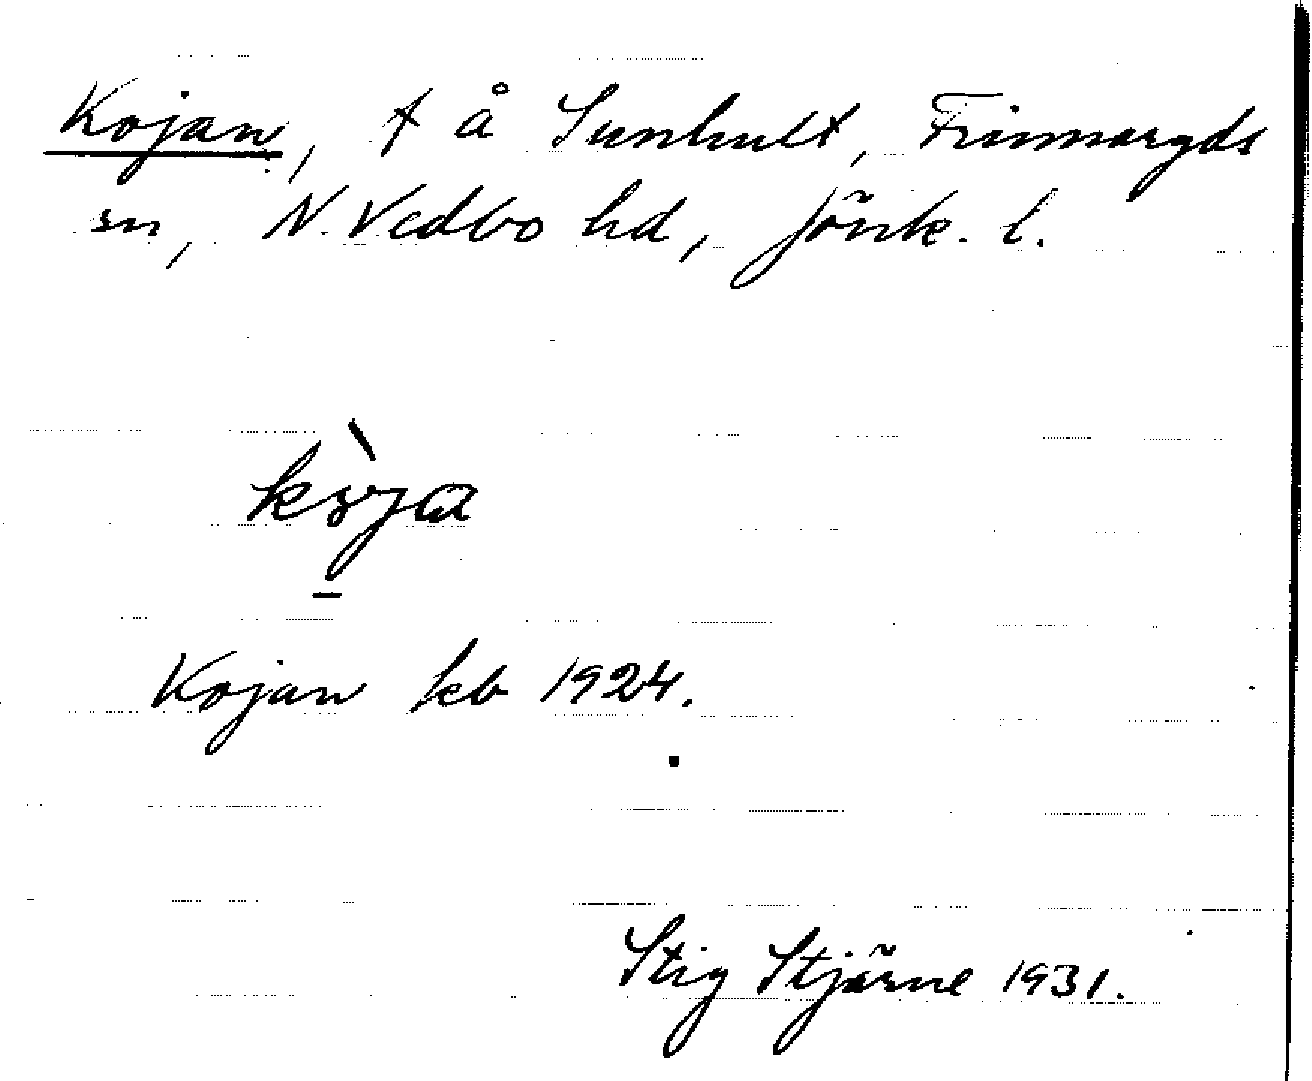 Kojan, t å Sunhult, Frinnaryds
sn, N. Vedbo hd, Jönk. l.
Kojan kb 1924.
Stig Stjärne 1931.